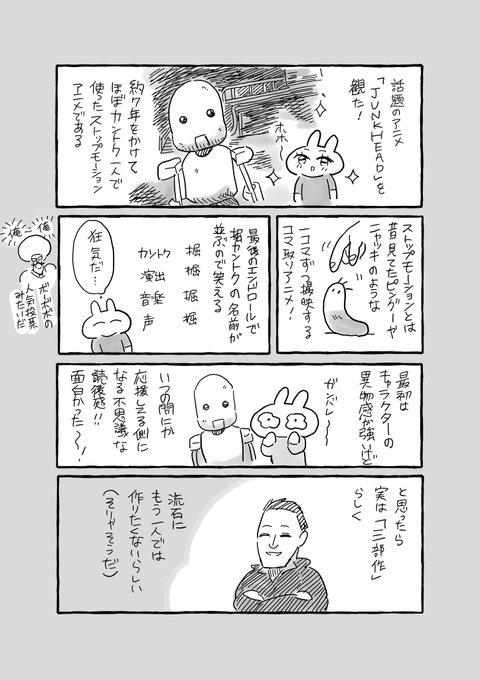 話題のアニメ
「JUNKHEAD」を
観た！
ホホ〜
約7年をかけて
ほぼカントク一人で
使ったストップモーション
アニメである
ストップモーションとは
昔見てたピングーや
ニャッキのような
一コマずつ撮映する
コマ取りアニメ！
最後のエンドロールで
堀カントクの名前が
並ぶので笑える
カントク 堀
演出 堀
音楽 堀
声 堀
狂気だ…
俺〜俺〜
ボーボボの
人気投票
みたいだ
最初は
キャラクターの
異物感が強いけど
ガンバレ〜
いつの間にか
応援してる側に
なる不思議な
読後感!!
面白かった〜！
と思ったら
実は「三部作」
らしく
流石に
もう一人では
作りたくないらしい
（そりゃそうだ）